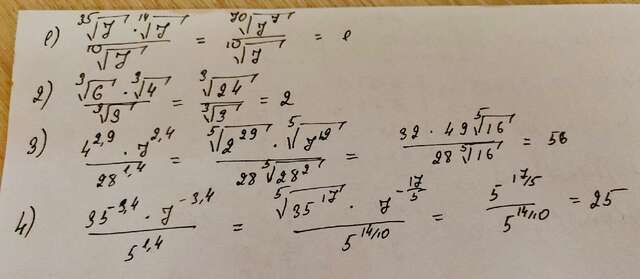 1) (³⁵√7 · ¹⁴√7)/(¹⁰√7) = (⁷⁰√7⁷)/(¹⁰√7) = 1
2) (³√6 · ³√4)/(³√3) = (³√24)/(³√3) = 2
3) (4^2,9 · 7^2,4)/(28^1,4) = (⁵√2²⁹ · ⁵√7¹²)/(28 ⁵√28²) = (32 · 49 ⁵√16)/(28 ⁵√16) = 56
4) (35^-3,4 · 7^-3,4)/(5^1,4) = (⁵√35¹⁷ · 7^-17/5)/(5^14/10) = (5^17/5)/(5^14/10) = 25